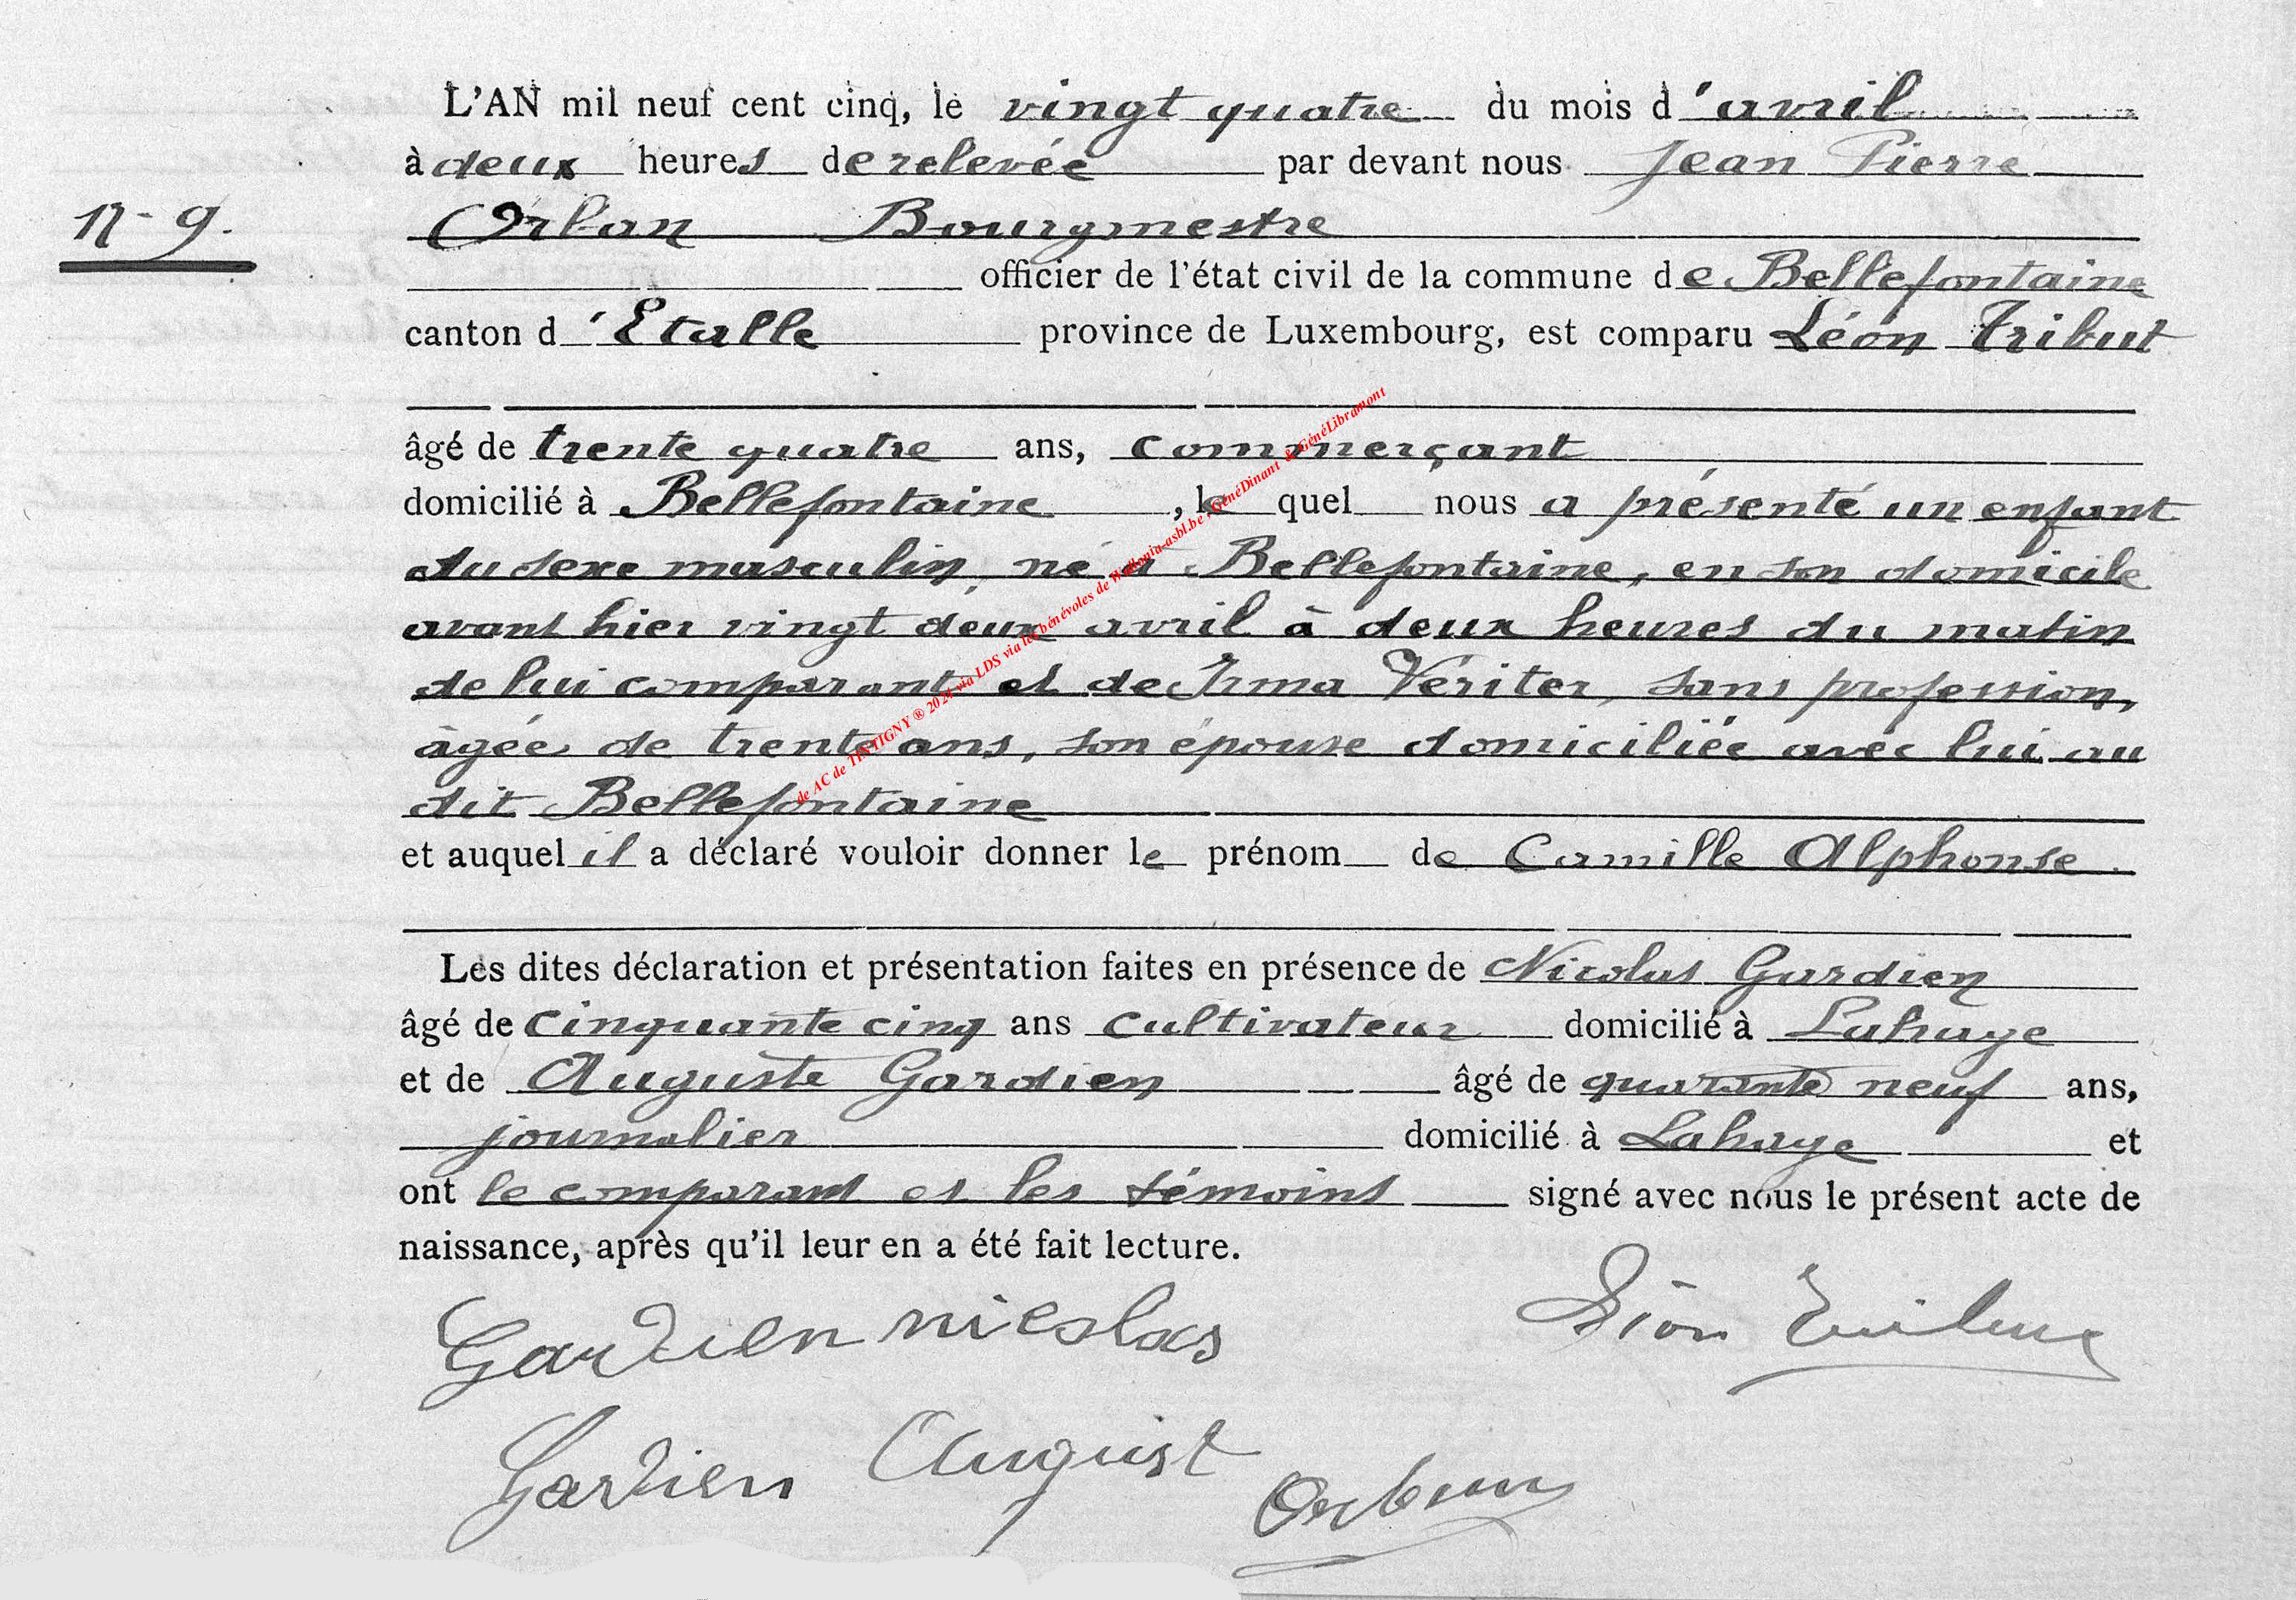 L'AN mil neuf cent cinq, le vingt quatre du mois d'avril
à deux heures de relevée par devant nous Jean Pierre
N° 9.
Orban Bourgmestre
officier de l'état civil de la commune de Bellefontaine
canton d'Etalle province de Luxembourg, est comparu Léon Tribut
âgé de trente quatre ans, commerçant
domicilié à Bellefontaine, le quel nous a présenté un enfant
du sexe masculin, né à Bellefontaine, en son domicile
avant hier vingt deux avril à deux heures du matin
de lui comparant et de Irma Veriter, sans profession,
âgée de trente ans, son épouse domiciliée avec lui au
dit Bellefontaine
et auquel il a déclaré vouloir donner le prénom de Camille Alphonse.
Les dites déclaration et présentation faites en présence de Nicolas Gardien
âgé de cinquante cinq ans cultivateur domicilié à Lahage
et de Auguste Gardien âgé de quarante neuf ans,
journalier domicilié à Lahage et
ont le comparant et les témoins signé avec nous le présent acte de
naissance, après qu'il leur en a été fait lecture.
Gardien nicolas
Gardien August
Orban
de AC de TINTIGNY ® 2024 via LDS via les bénévoles de Wallonia-asbl.be, GénéDinant & GénéLibramont